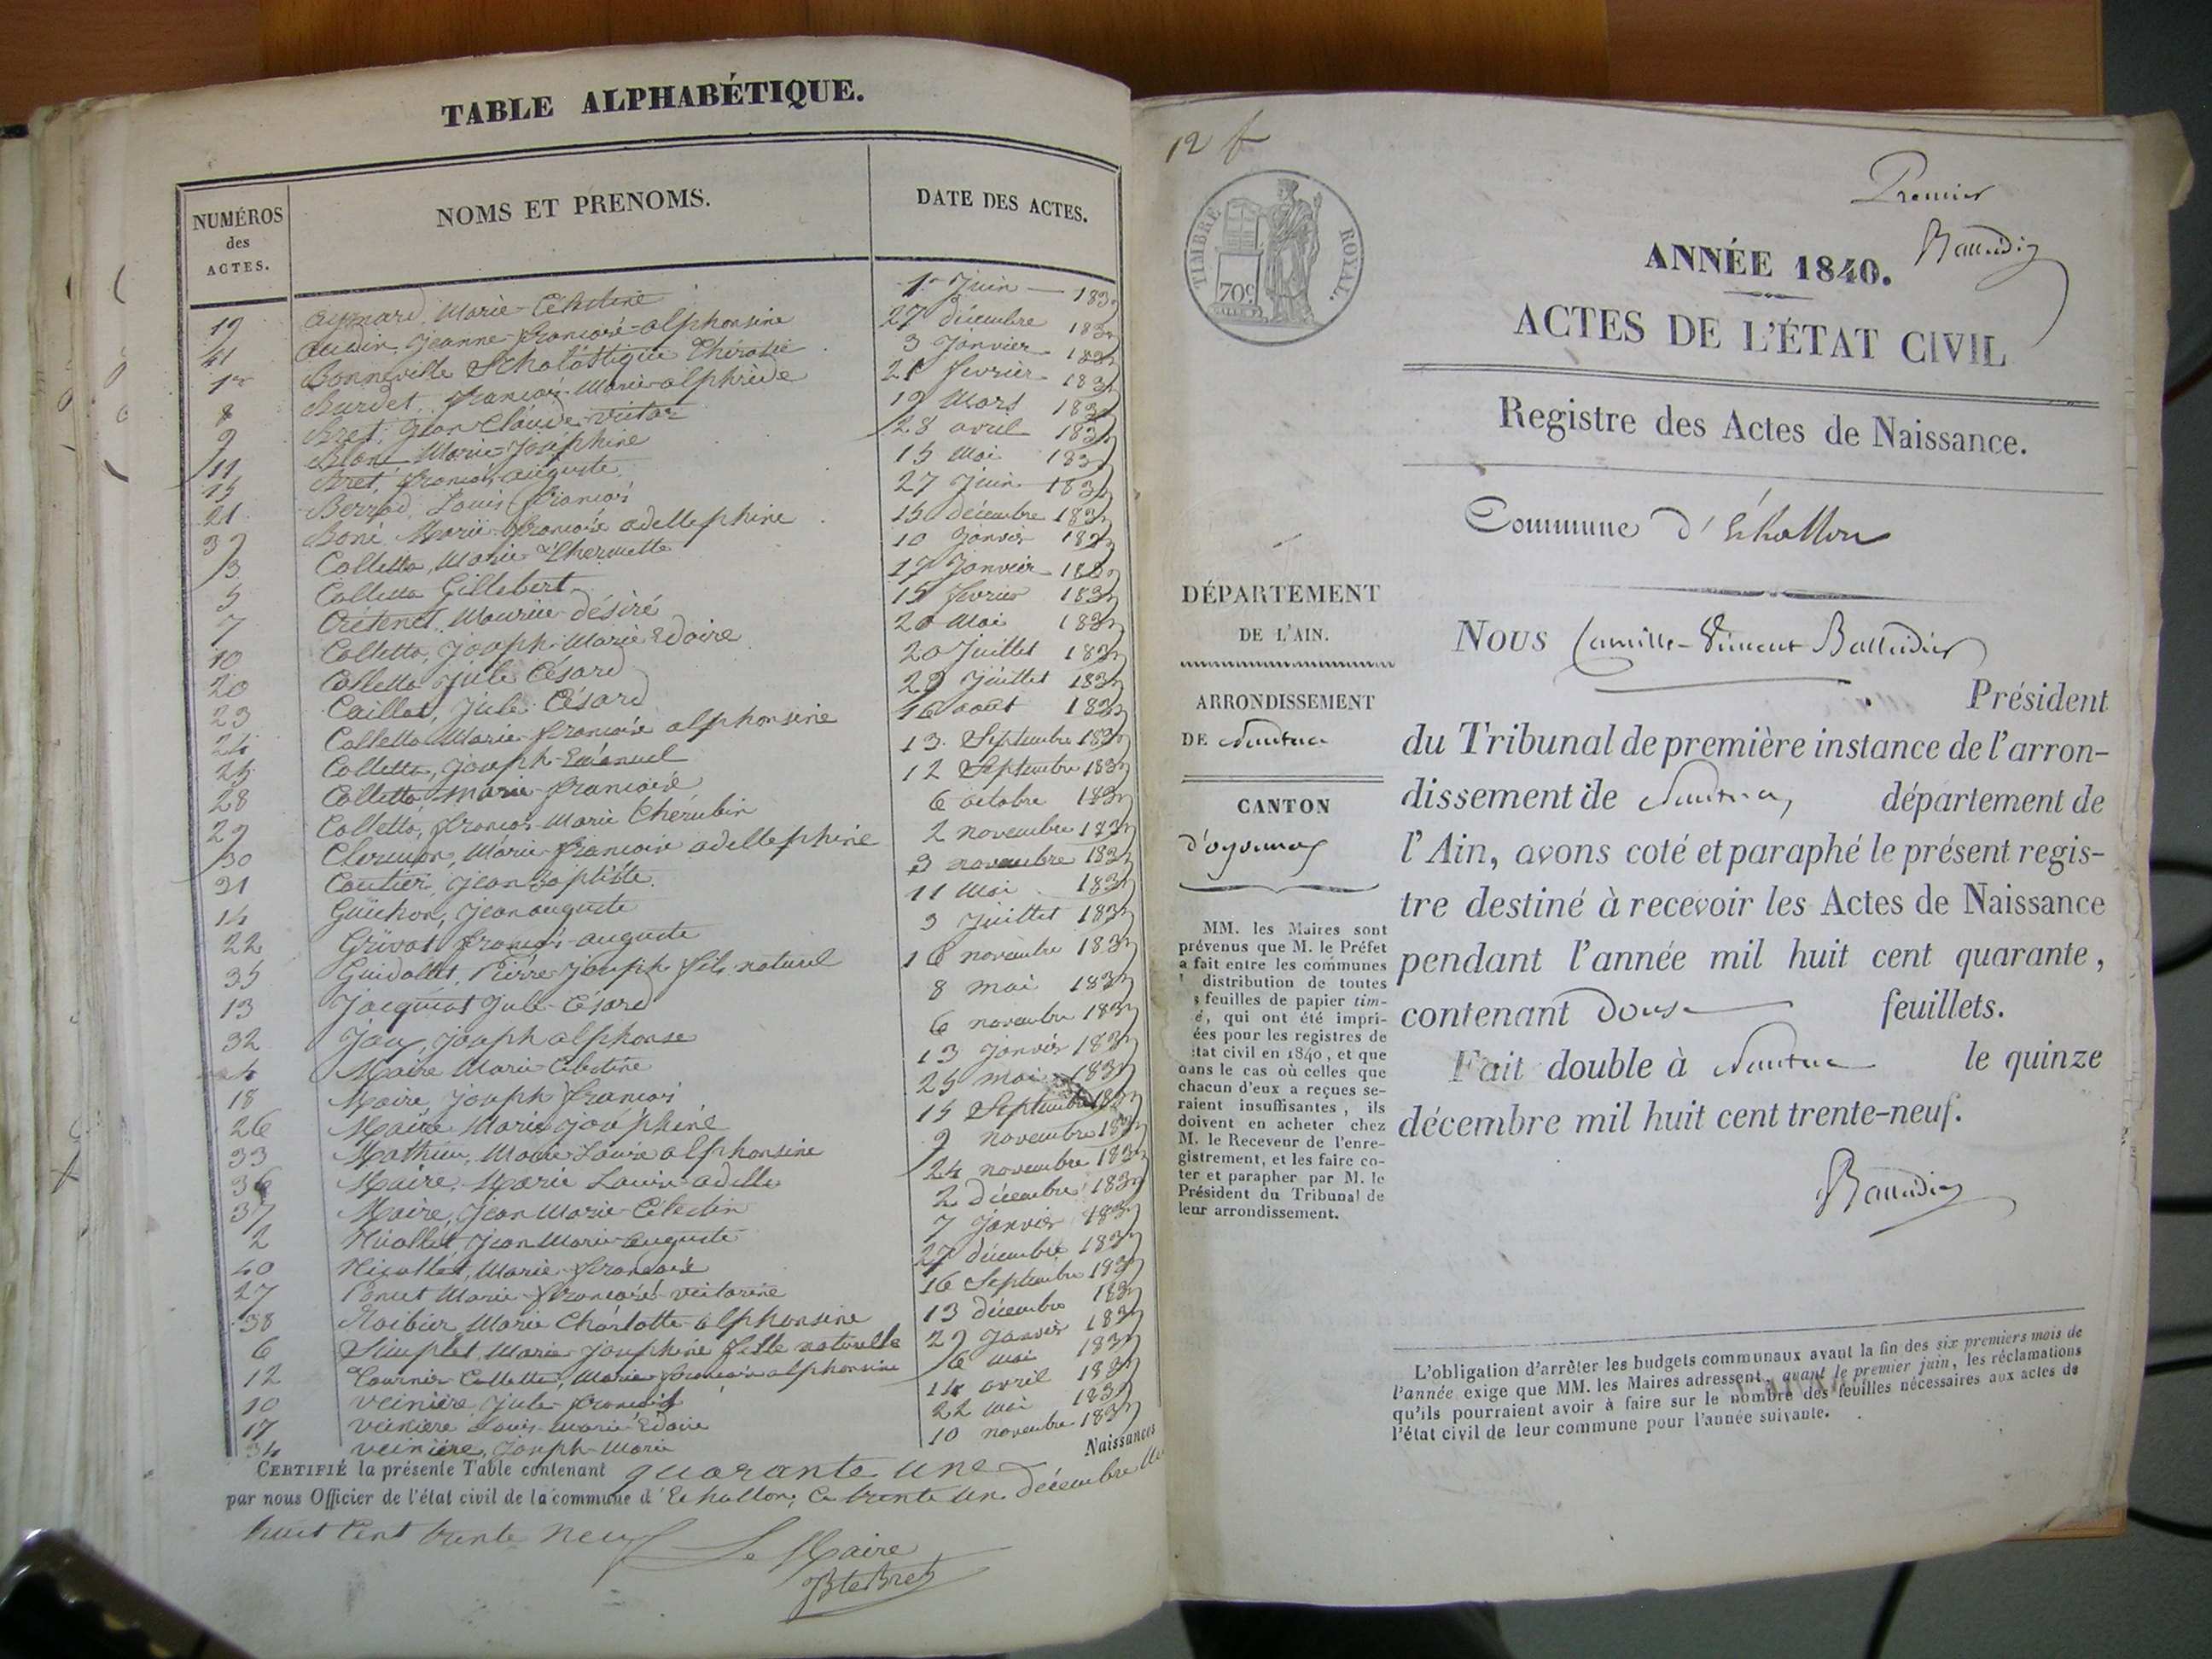 TABLE ALPHABÉTIQUE.
NUMÉROS des ACTES.
NOMS ET PRENOMS.
DATE DES ACTES.
19 Aymard, Marie-Célestine 1er Juin 1839
41 Audin, Jeanne-françoise-alphonsine 27 décembre 1839
1er Bonneville Scholastique Thérésie 3 Janvier 1839
8 Burdet, françois-Marie-alphrède 21 fevrier 1839
9 Bret, Jean Claude victor 19 Mars 1839
11 Blanc Marie-Joséphine 28 avril 1839
15 Bret, françois auguste 15 Mai 1839
21 Berrod, Louis françois 27 Juin 1839
39 Boné Marie françoise adellephine 15 décembre 1839
3 Colletta, Marie 10 Janvier 1839
5 Colletta Gillebert 17 Janvier 1839
7 Crétenet Maurice désiré 15 fevrier 1839
10 Colletta, Joseph-Marie Edoire 20 Mai 1839
20 Colletta Jule César 20 Juillet 1839
23 Caillat, Jule César 29 Juillet 1839
24 Colletta Marie françoise alphonsine 16 août 1839
25 Colletta, Joseph-Emanuel 13 Septembre 1839
28 Colletta, Marie françoise 12 Septembre 1839
29 Colletta, françois Marie Chérubin 6 octobre 1839
30 Clermon, Marie françoise adellephine 2 novembre 1839
31 Coutier, Jean Baptiste 3 novembre 1839
14 Guichon, Jean auguste 11 Mai 1839
22 Grivat françois-auguste 3 Juillet 1839
35 Guidollet, Pierre Joseph fils naturel 16 novembre 1839
13 Jacquiot Jule César 8 mai 1839
32 Jay, Joseph alphonse 6 novembre 1839
4 Maire Marie Célestine 13 Janvier 1839
18 Maire, Joseph françois 25 mai 1839
26 Maire Marie Joséphine 15 Septembre 1839
33 Mathieu, Marie Louise alphonsine 9 novembre 1839
36 Maire, Marie Louise adelle 24 novembre 1839
37 Maire, Jean Marie Célestin 2 décembre 1839
2 Nicollet Jean Marie auguste 7 Janvier 1839
40 Nicollet, Marie françoise 27 décembre 1839
27 Poncet Marie françoise victorine 16 Septembre 1839
38 Marie Charlotte alphonsine 13 décembre 1839
6 Simplet, Marie Joséphine fille naturelle 29 Janvier 1839
12 Tournier Colletta, Marie françoise alphonsine 6 mai 1839
10 veinière, Jule françois 14 avril 1839
17 veinière Louis Marie Edoire 22 mai 1839
34 veinière, Joseph-Marie 10 novembre 1839
CERTIFIÉ la présente Table contenant quarante une Naissances
par nous Officier de l'état civil de la commune d'Echallon, Ce trente un décembre
huit Cent trente neuf Le Maire
Bte Bret
12 f
TIMBRE ROYAL.
70c
Premier
Ballidier
ANNÉE 1840.
ACTES DE L'ÉTAT CIVIL
Registre des Actes de Naissance.
Commune d'Echallon
DÉPARTEMENT
DE L'AIN.
ARRONDISSEMENT
DE Nantua
CANTON
d'oyonnax
MM. les Maires sont
prévenus que M. le Préfet
a fait entre les communes
distribution de toutes
s feuilles de papier tim-
é, qui ont été impri-
ées pour les registres de
état civil en 1840, et que
dans le cas où celles que
chacun d'eux a reçues se-
raient insuffisantes, ils
doivent en acheter chez
M. le Receveur de l'enre-
gistrement, et les faire co-
ter et parapher par M. le
Président du Tribunal de
leur arrondissement.
Nous Camille-Vincent Ballidier
Président
du Tribunal de première instance de l'arron-
dissement de Nantua, département de
l'Ain, avons coté et paraphé le présent regis-
tre destiné à recevoir les Actes de Naissance
pendant l'année mil huit cent quarante,
contenant douze feuillets.
Fait double à Nantua le quinze
décembre mil huit cent trente-neuf.
Ballidier
L'obligation d'arrêter les budgets communaux avant la fin des six premiers mois de
l'année exige que MM. les Maires adressent, avant le premier juin, les réclamations
qu'ils pourraient avoir à faire sur le nombre des feuilles nécessaires aux actes de
l'état civil de leur commune pour l'année suivante.